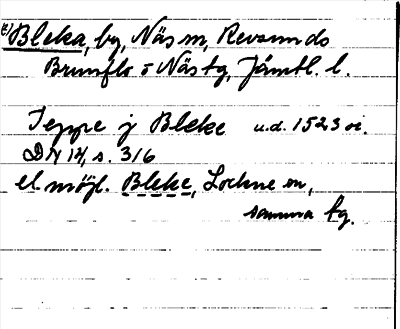 e) Bleka, by, Näs sn, Revsunds
Brunflo o Näs tg, Jämtl. l.
Jeppe j Bleke u.d. 1523 oi.
DN 14, s. 316
el. möjl. Bleke, Lockne sn,
samma tg.